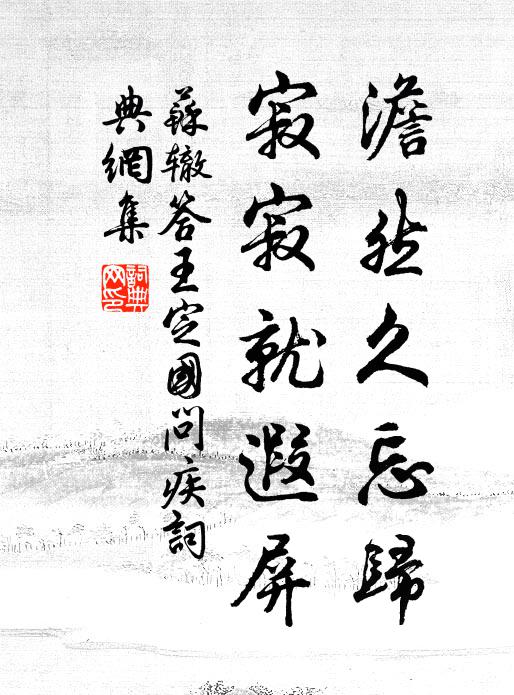 澹然久忘歸
寂寂就遐屏
蘇辙答王定國問疾詞
典網集
詞典網印